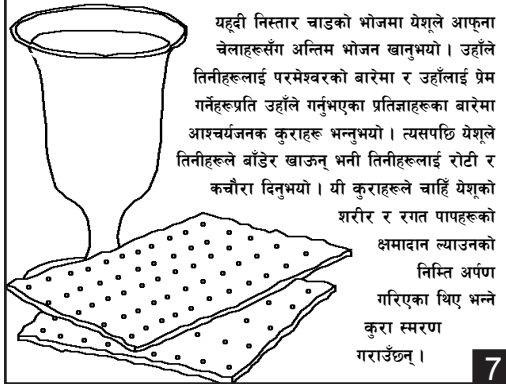 यहूदी निस्तार चाडको भोजमा येशूले आफ्ना
चेलाहरूसँग अन्तिम भोजन खानुभयो । उहाँले
तिनीहरूलाई परमेश्वरको बारेमा र उहाँलाई प्रेम
गर्नेहरूप्रति उहाँले गर्नुभएका प्रतिज्ञाहरूका बारेमा
आश्चर्यजनक कुराहरू भन्नुभयो । त्यसपछि येशूले
तिनीहरूले बाँडेर खाऊन् भनी तिनीहरूलाई रोटी र
कचौरा दिनुभयो । यी कुराहरूले चाहिँ येशूको
शरीर र रगत पापहरूको
क्षमादान ल्याउनको
निम्ति अर्पण
गरिएका थिए भन्ने
कुरा स्मरण
गराउँछन् ।
7